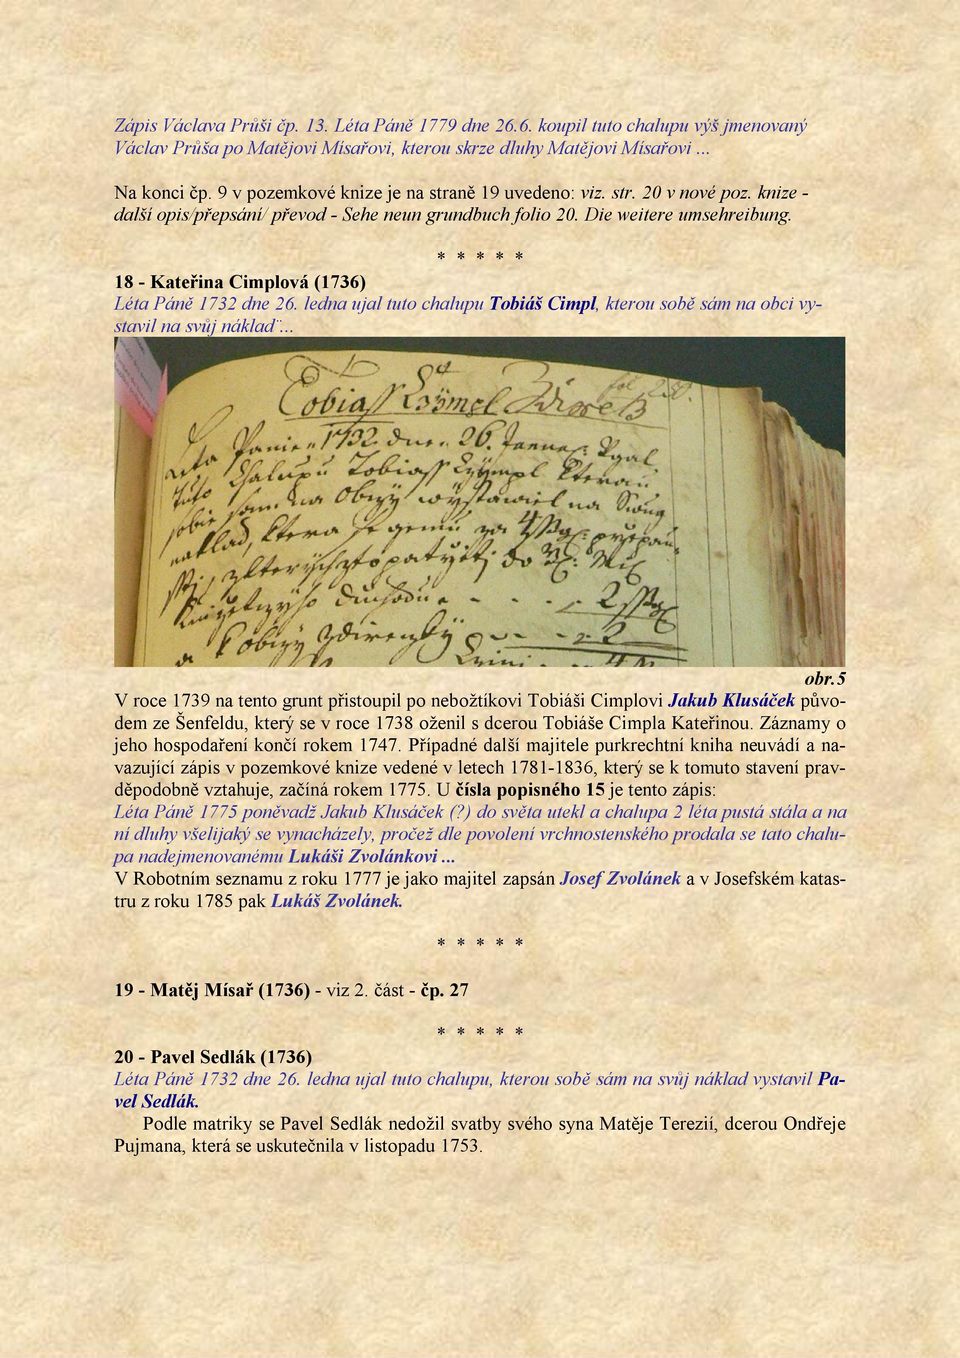 Zápis Václava Průši čp. 13. Léta Páně 1779 dne 26.6. koupil tuto chalupu výš jmenovaný
Václav Průša po Matějovi Mísařovi, kterou skrze dluhy Matějovi Mísařovi ...
Na konci čp. 9 v pozemkové knize je na straně 19 uvedeno: viz. str. 20 v nové poz. knize -
další opis/přepsání/ převod - Sehe neun grundbuch folio 20. Die weitere umsehreibung.
* * * * *
18 - Kateřina Cimplová (1736)
Léta Páně 1732 dne 26. ledna ujal tuto chalupu Tobiáš Cimpl, kterou sobě sám na obci vy-
stavil na svůj náklad¨...
fol 280.
Tobiass Czympl
Léta Panie 1732 dne 26. Janua: Ugal
tuto Chalupu Tobiass Czympl kterau
sobie sam na Obczy wystawiel na Swug
naklad, ktera se gemu za 4 ßßg: przepau-
do
duchodu - - - - 2 ßßg
k obczy - - - 2
obr.5
V roce 1739 na tento grunt přistoupil po nebožtíkovi Tobiáši Cimplovi Jakub Klusáček půvo-
dem ze Šenfeldu, který se v roce 1738 oženil s dcerou Tobiáše Cimpla Kateřinou. Záznamy o
jeho hospodaření končí rokem 1747. Případné další majitele purkrechtní kniha neuvádí a na-
vazující zápis v pozemkové knize vedené v letech 1781-1836, který se k tomuto stavení prav-
děpodobně vztahuje, začíná rokem 1775. U čísla popisného 15 je tento zápis:
Léta Páně 1775 poněvadž Jakub Klusáček (?) do světa utekl a chalupa 2 léta pustá stála a na
ní dluhy všelijaký se vynacházely, pročež dle povolení vrchnostenského prodala se tato chalu-
pa nadejmenovanému Lukáši Zvolánkovi ...
V Robotním seznamu z roku 1777 je jako majitel zapsán Josef Zvolánek a v Josefském katas-
tru z roku 1785 pak Lukáš Zvolánek.
* * * * *
19 - Matěj Mísař (1736) - viz 2. část - čp. 27
* * * * *
20 - Pavel Sedlák (1736)
Léta Páně 1732 dne 26. ledna ujal tuto chalupu, kterou sobě sám na svůj náklad vystavil Pa-
vel Sedlák.
Podle matriky se Pavel Sedlák nedožil svatby svého syna Matěje Terezií, dcerou Ondřeje
Pujmana, která se uskutečnila v listopadu 1753.